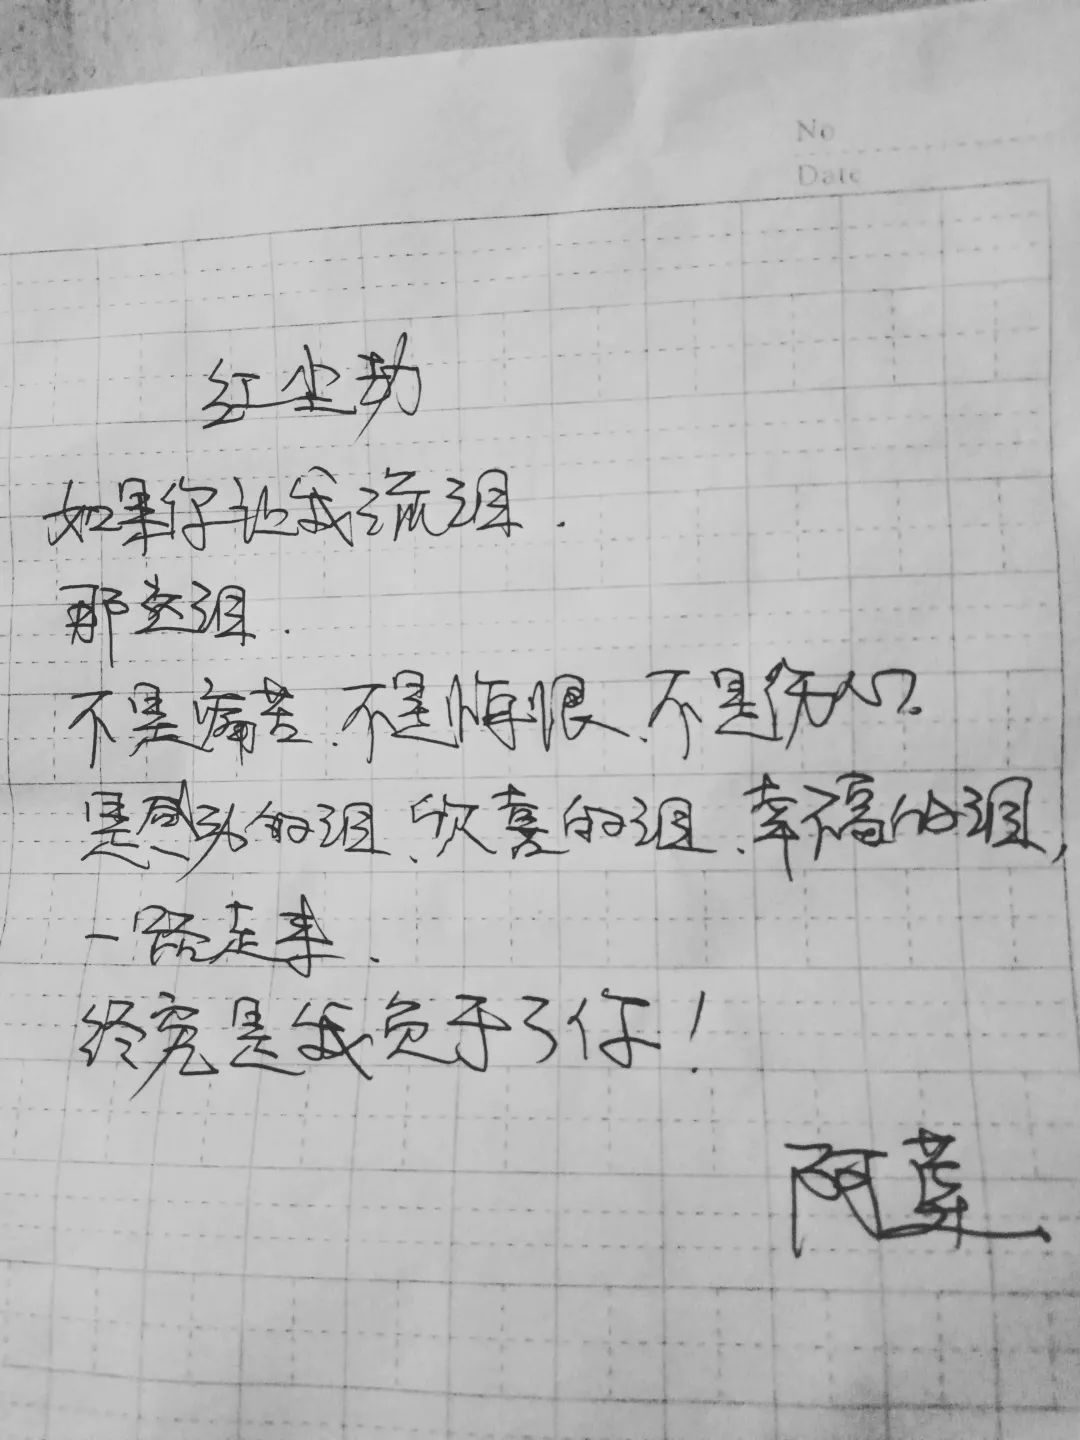 No
Date
红尘劫
如果你让我流泪.
那些泪.
不是痛苦、不是悔恨、不是伤心.
是感动的泪、欣喜的泪、幸福的泪,
一路走来.
终究是我负于了你!
阿莲